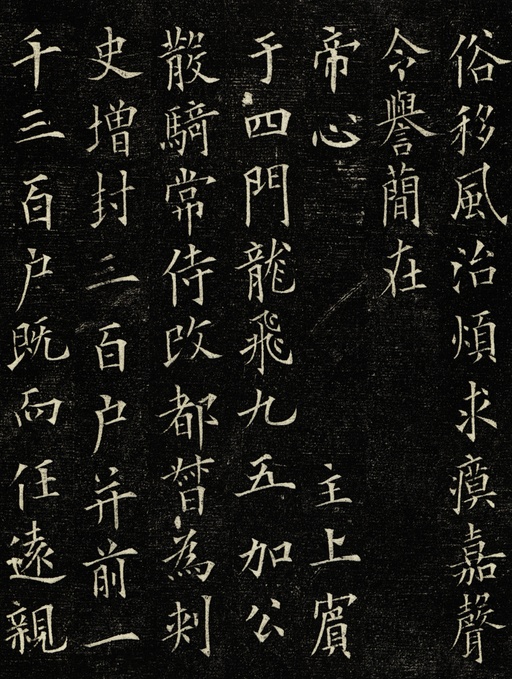 俗移風治煩求瘼嘉聲
令譽蕑在
帝心主上賔
于四門龍飛九五加公
散騎常侍改都督為刺
史增封三百户并前一
千三百户既而任遠親